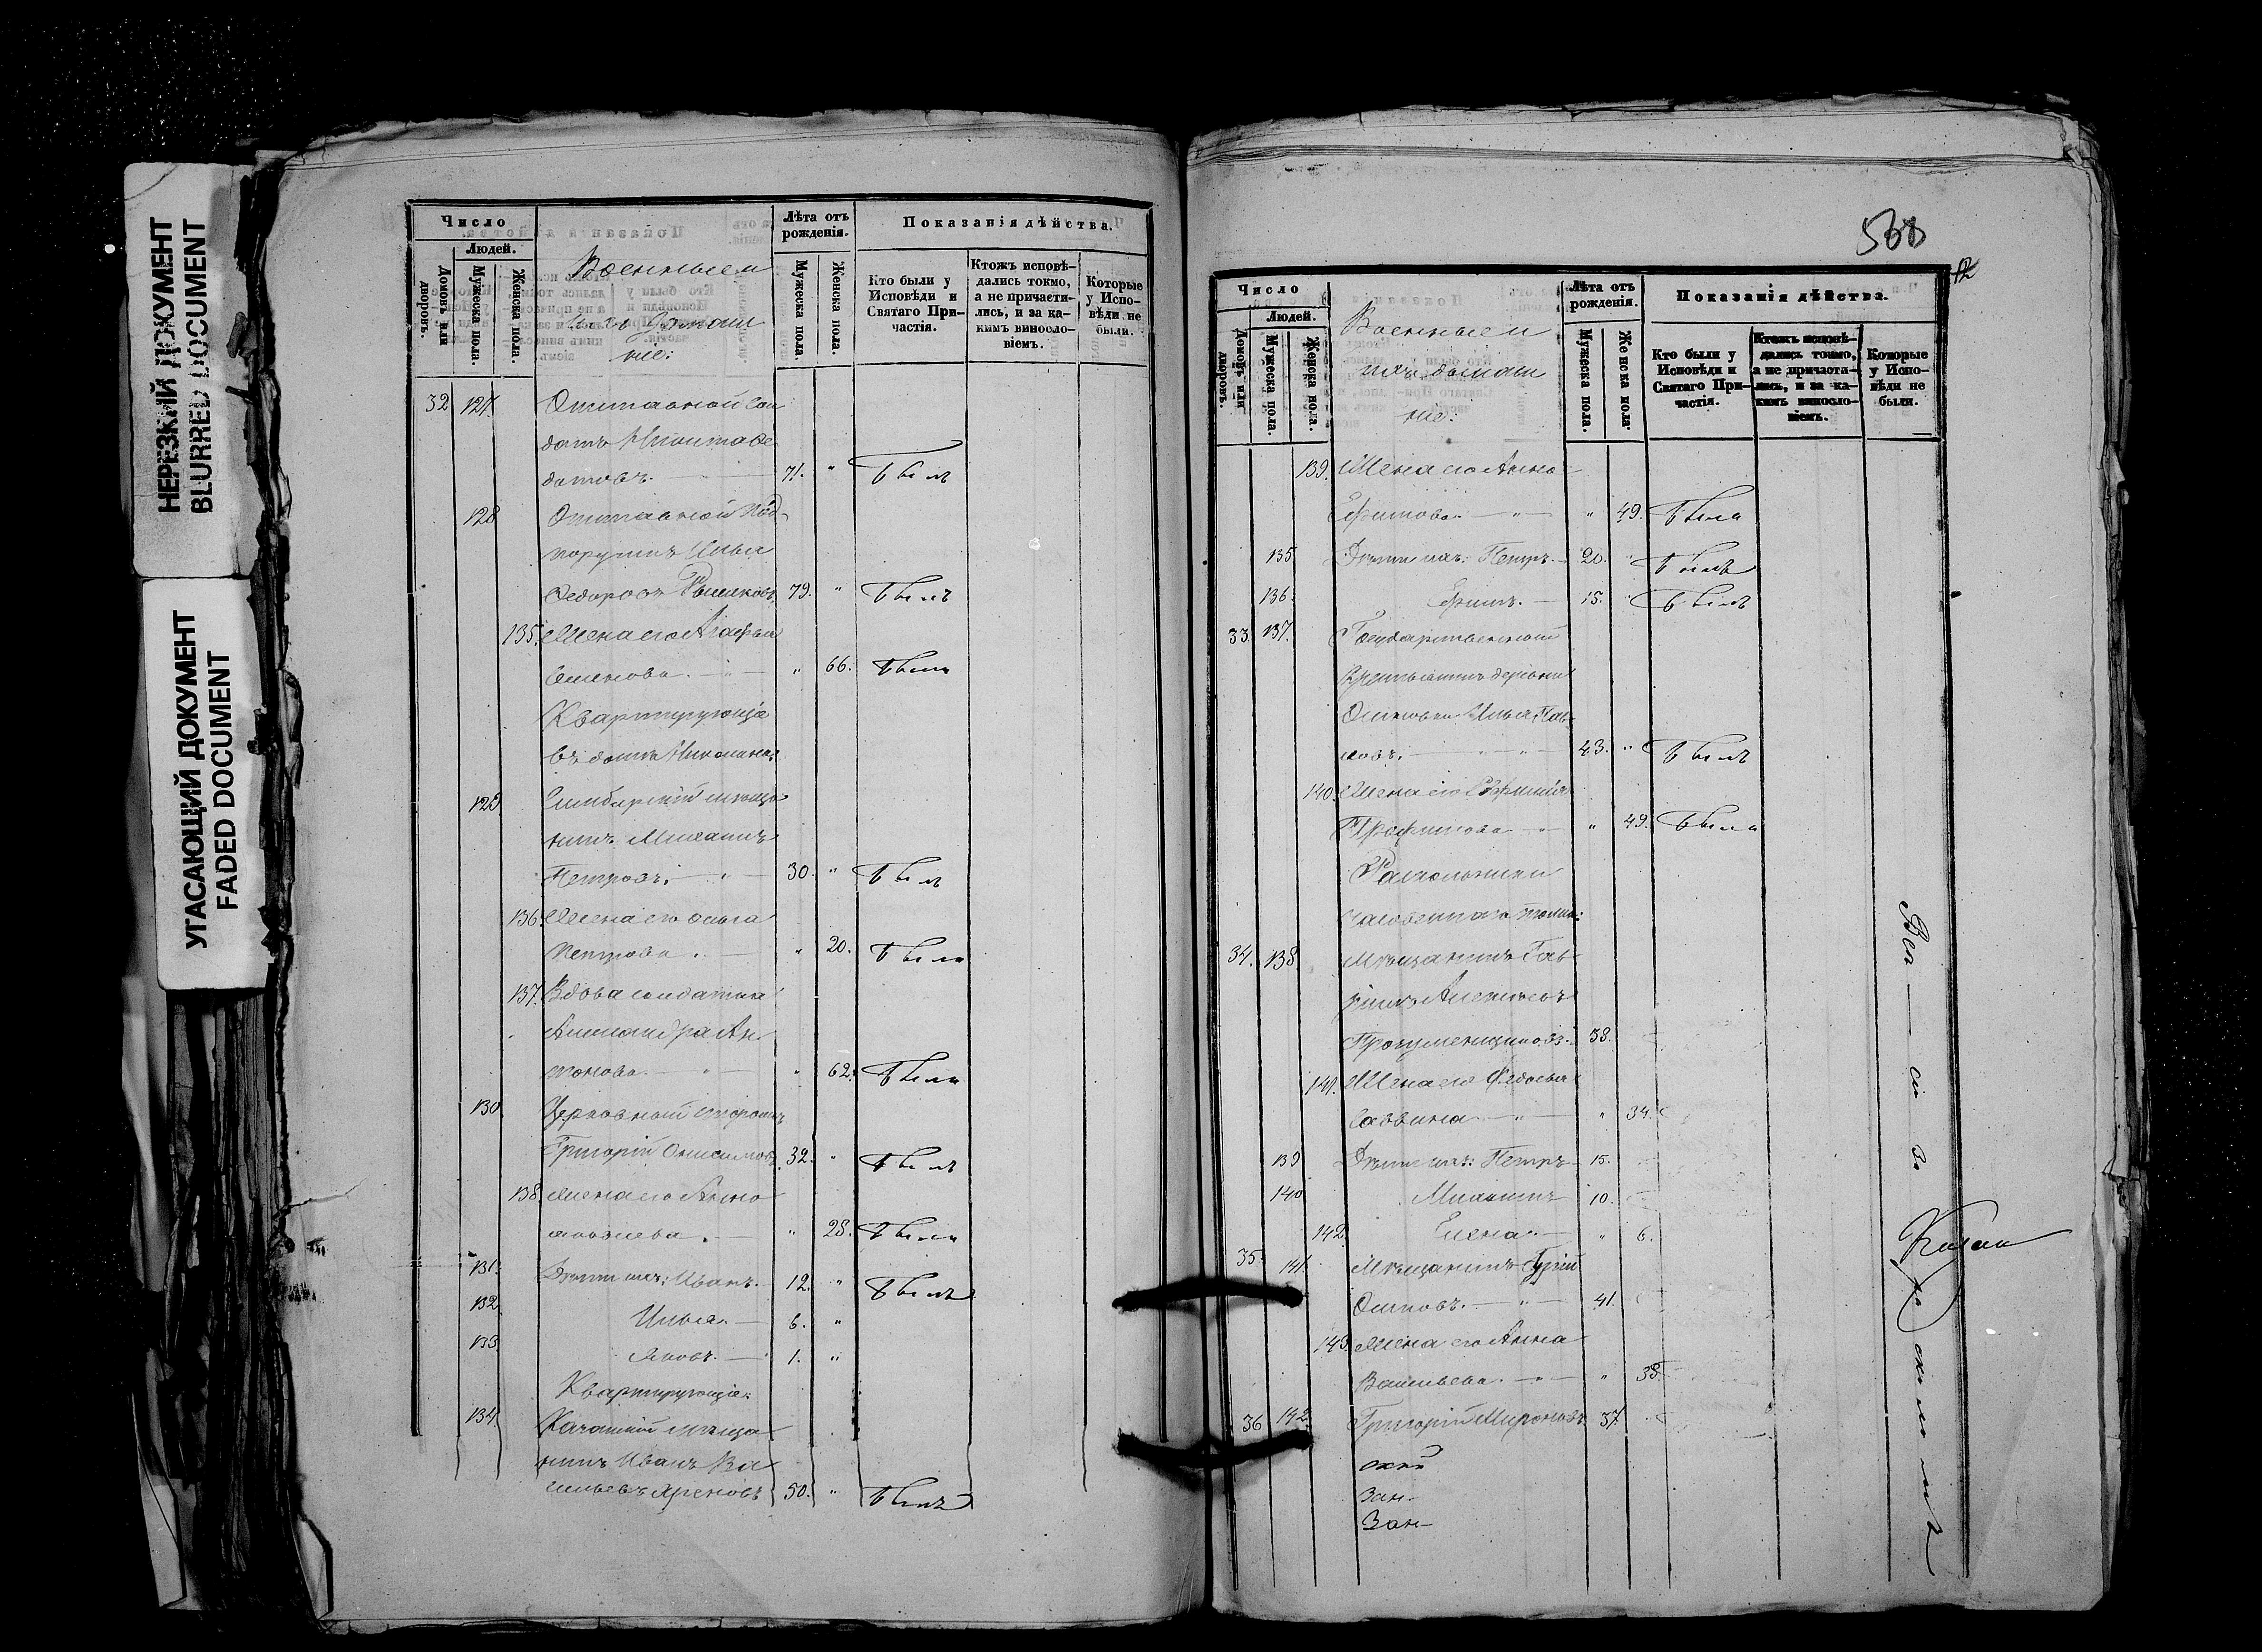 НЕРЕЗКИЙ ДОКУМЕНТ
BLURRED DOCUMENT
УГАСАЮЩИЙ ДОКУМЕНТ
FADED DOCUMENT
Число
Людей.
Домовъ или дворовъ.
Мужеска пола.
Женска пола.
Военные и
ихъ домаш
ніе:
Лѣта отъ рожденія.
Мужеска пола.
Женска пола.
Показанія дѣйства.
Кто были у Исповѣди и Святаго Причастія.
Ктожъ исповѣдались токмо, а не причастились, и за какимъ винословіемъ.
Которые у Исповѣди не были.
32 127. Отставной Сол
датъ Никита Фе
дотовъ. 71. " Былъ
128 Отставной Под
поручикъ Илья
Федоровъ 79. " Былъ
135. Жена его Агафья
Семенова. " 66. Была
Квартирующіе
въ домѣ
129 Симбирскій мѣща
нинъ Михаилъ
Петровъ. 30. " Былъ
136. Жена его Ольга
Петрова. " 20. Была
137. Вдова солдатка
Александра Ан
тонова. " 62. Была
130 Церковный сторожъ
Григорій Онисимовъ 32. " Былъ
138. Жена его Анна
Яковлева. " 28. Была
131. Дѣти ихъ: Иванъ. 12. " Былъ
132 Илья. 6. "
133 Яковъ. 1. "
Квартирующіе:
134. Казанскій мѣща
нинъ Иванъ Ва
сильевъ 50. " Былъ
560
12
Число
Людей.
Домовъ или дворовъ.
Мужеска пола.
Женска пола.
Военные и
ихъ домаш
ніе:
Лѣта отъ рожденія.
Мужеска пола.
Женска пола.
Показанія дѣйства.
Кто были у Исповѣди и Святаго Причастія.
Ктожъ исповѣдались токмо, а не причастились, и за какимъ винословіемъ.
Которые у Исповѣди не были.
139. Жена его Анна
Ефимова. " 49. Была
135. Дѣти ихъ: Петръ. 20. " Былъ
136. Ефимъ. 15. " Былъ
33. 137. Государственный
Крестьянинъ деревни
Илья Пав
ловъ. 43. " Былъ
140. Жена его Евфимія
Трофимова " 49. Была
Раскольники
часовеннаго толка:
34. 138. Мѣщанинъ Гав
ріилъ Алексѣевъ
58.
141. Жена его Федосья
Саввина " 34.
139 Дѣти ихъ: Петръ 15.
140 Михаилъ 10.
142. Елена. " 6.
35. 141. Мѣщанинъ Гурій
Осиповъ. 41.
143. Жена его Анна
Васильева. " 38.
36 142. Григорій Мироновъ. 37.
Зан-
Зан-